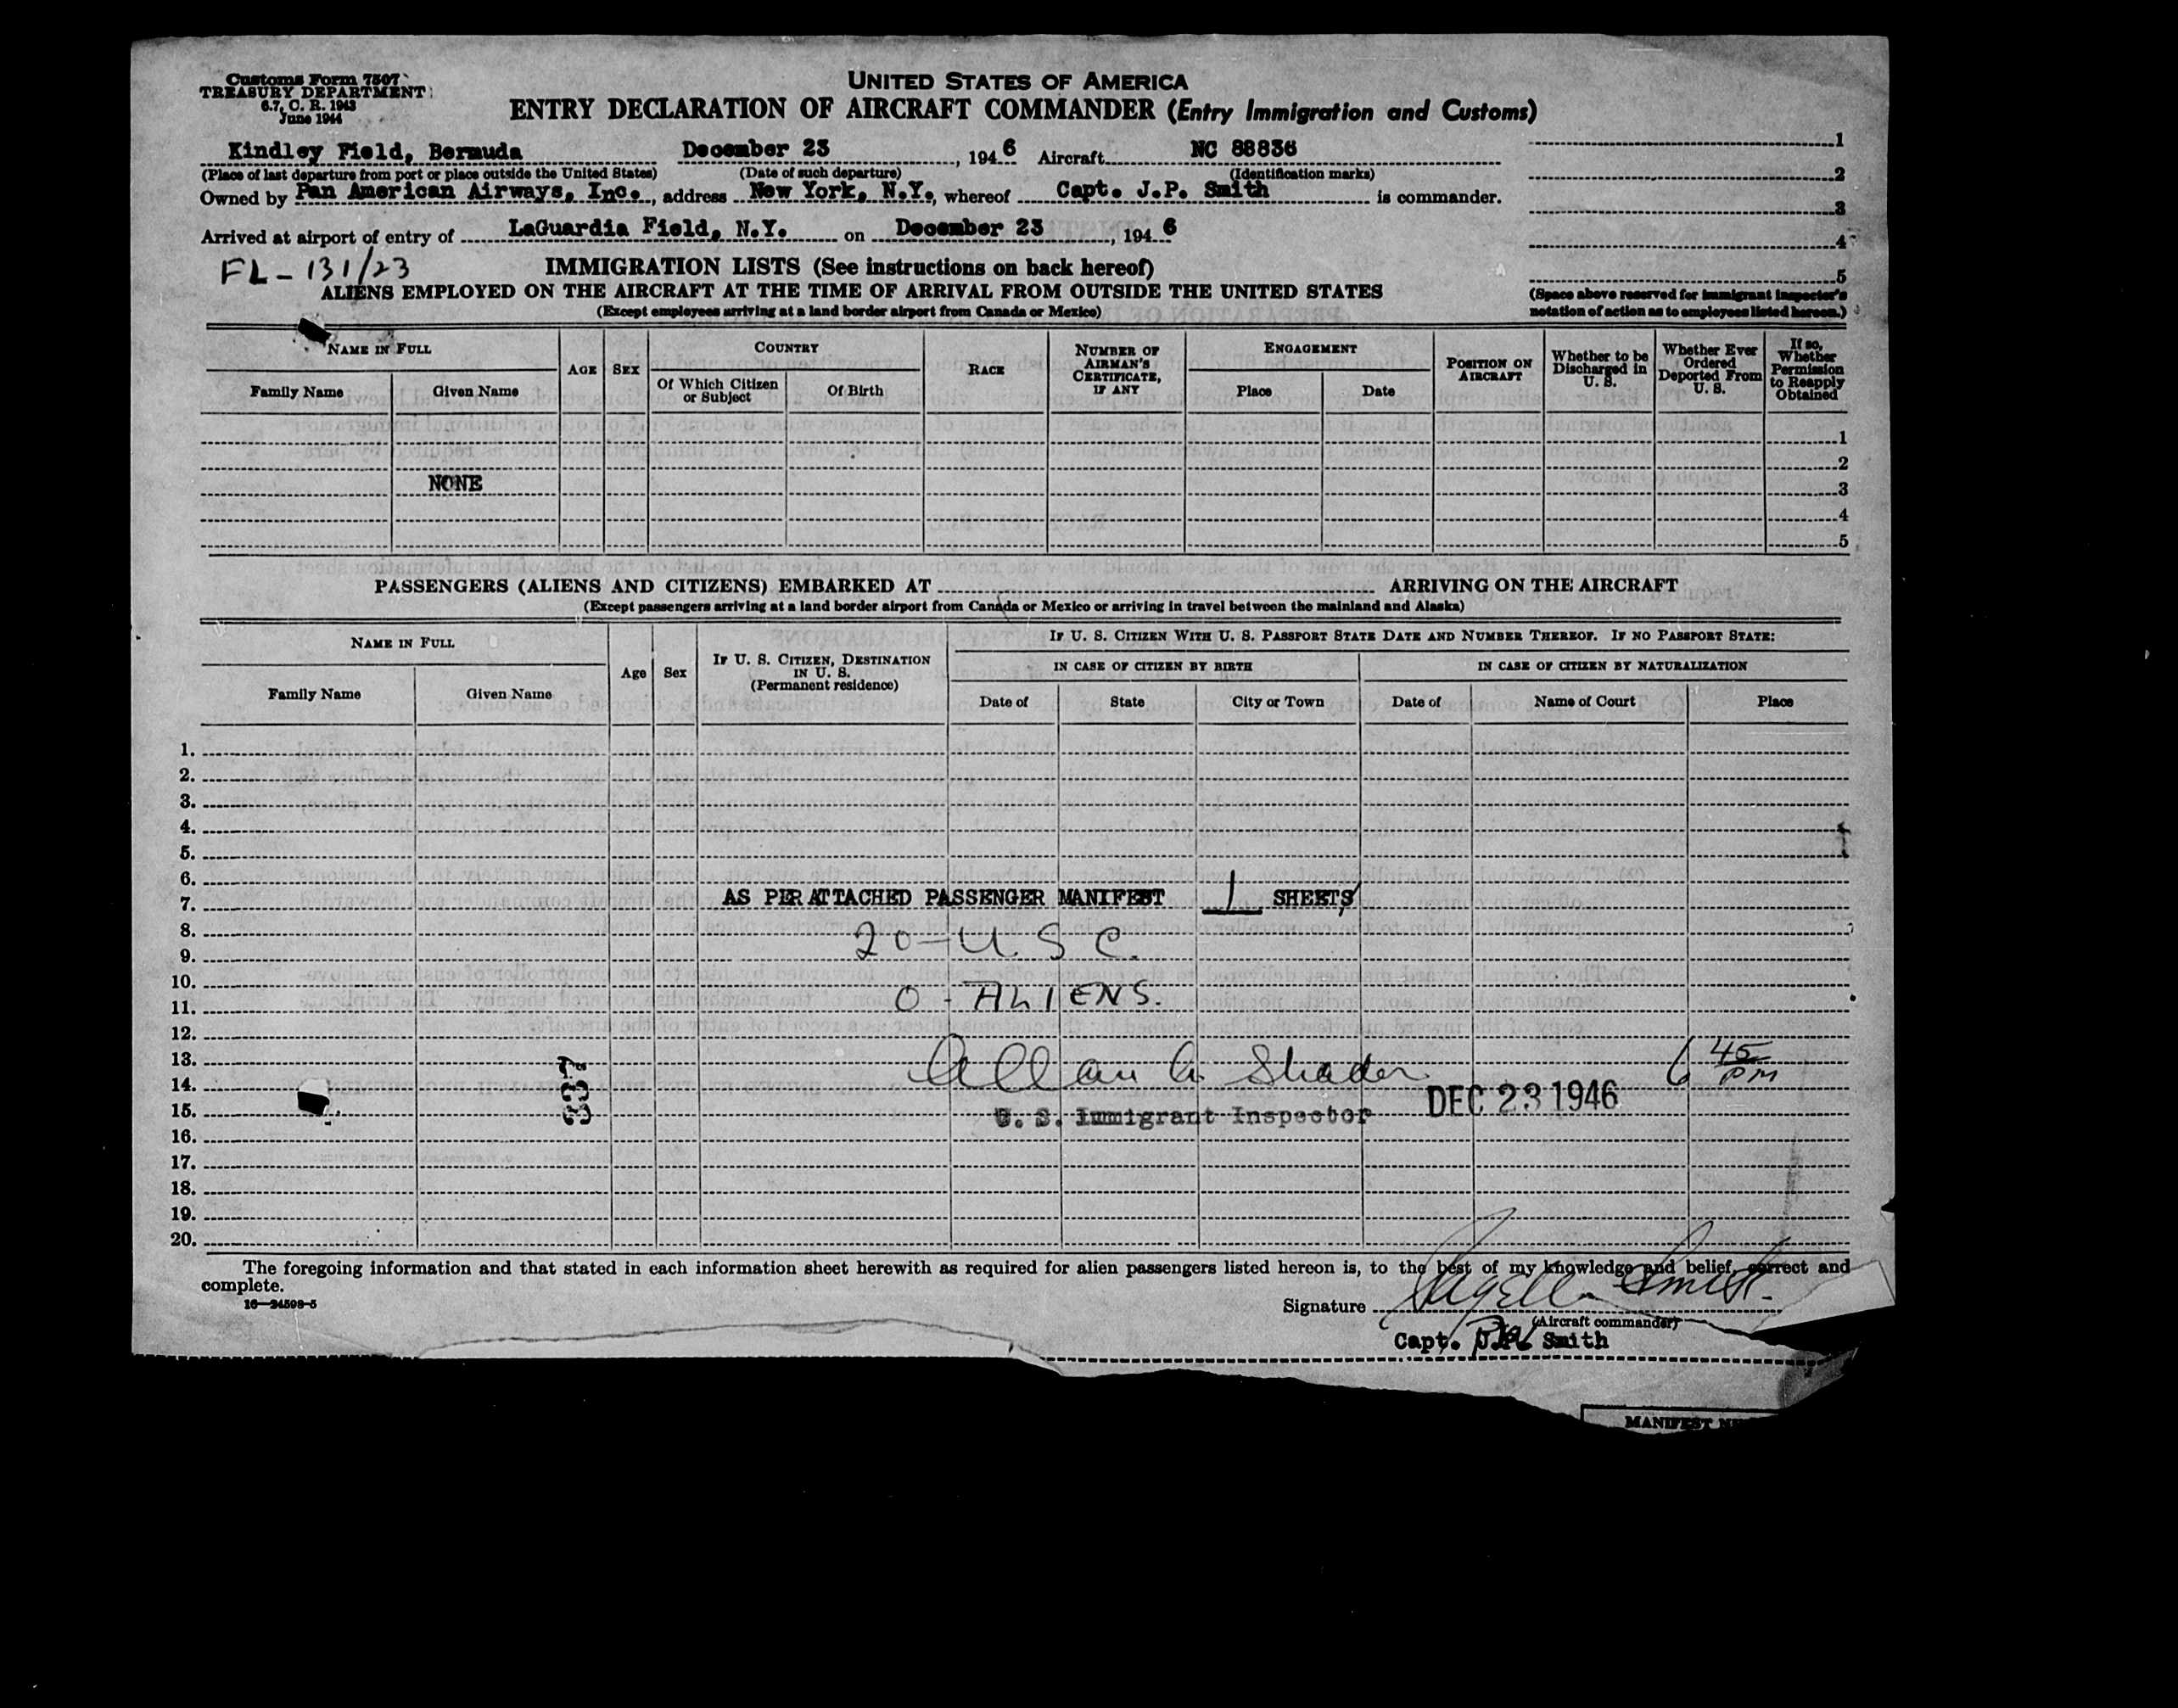 Customs Form 7507
TREASURY DEPARTMENT
6.7, C. R. 1943
June 1944
UNITED STATES OF AMERICA
ENTRY DECLARATION OF AIRCRAFT COMMANDER (Entry Immigration and Customs)
Kindley Field, Bermuda December 23, 1946 Aircraft NC 88836
(Place of last departure from port or place outside the United States) (Date of such departure) (Identification marks)
Owned by Pan American Airways, Inc., address New York, N.Y., whereof Capt. J.P. Smith is commander.
Arrived at airport of entry of LaGuardia Field, N.Y. on December 23, 1946
1
2
3
4
5
(Space above reserved for immigrant inspector's
notation of action as to employees listed hereon.)
FL-131/23
IMMIGRATION LISTS (See instructions on back hereof)
ALIENS EMPLOYED ON THE AIRCRAFT AT THE TIME OF ARRIVAL FROM OUTSIDE THE UNITED STATES
(Except employees arriving at a land border airport from Canada or Mexico)
NAME IN FULL
Family Name Given Name
AGE
SEX
COUNTRY
Of Which Citizen
or Subject
Of Birth
RACE
NUMBER OF
AIRMAN'S
CERTIFICATE,
IF ANY
ENGAGEMENT
Place Date
POSITION ON
AIRCRAFT
Whether to be
Discharged in
U. S.
Whether Ever
Ordered
Deported From
U. S.
If so,
Whether
Permission
to Reapply
Obtained
1
2
NONE 3
4
5
PASSENGERS (ALIENS AND CITIZENS) EMBARKED AT ARRIVING ON THE AIRCRAFT
(Except passengers arriving at a land border airport from Canada or Mexico or arriving in travel between the mainland and Alaska)
NAME IN FULL
Family Name Given Name
Age
Sex
IF U. S. CITIZEN, DESTINATION
IN U. S.
(Permanent residence)
IF U. S. CITIZEN WITH U. S. PASSPORT STATE DATE AND NUMBER THEREOF. IF NO PASSPORT STATE:
IN CASE OF CITIZEN BY BIRTH IN CASE OF CITIZEN BY NATURALIZATION
Date of State City or Town Date of Name of Court Place
1.
2.
3.
4.
5.
6.
7. AS PER ATTACHED PASSENGER MANIFEST 1 SHEETS
8.
9. 20-U.S C.
10.
11. 0-ALIENS.
12.
13. Allan G. Shader 6 45 PM
14.
337
15. U. S. Immigrant Inspector DEC 23 1946
16.
17.
18.
19.
20.
The foregoing information and that stated in each information sheet herewith as required for alien passengers listed hereon is, to the best of my knowledge and belief, correct and
complete.
16—24598-5
Signature Smith
(Aircraft commander)
Capt. Smith
MANIFEST